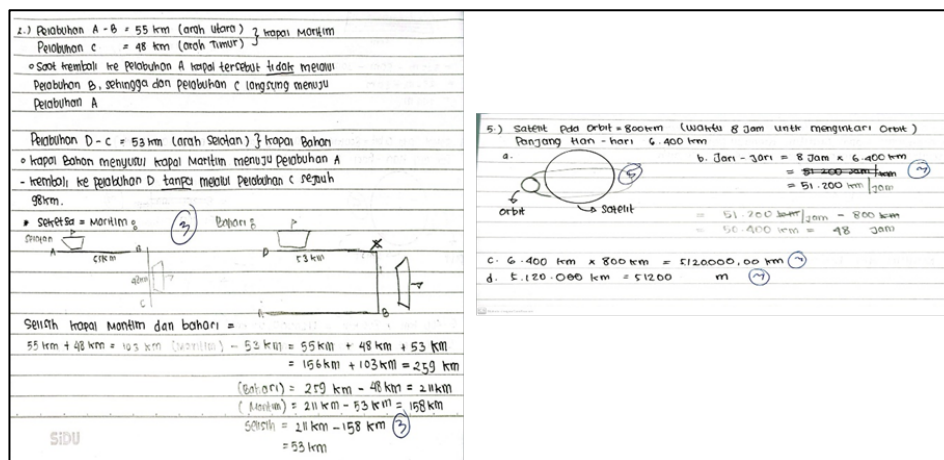 2.) Pelabuhan A - B = 55 km (arah utara) } kapal Maritim
Pelabuhan C = 48 km (arah Timur)
o Saat kembali ke pelabuhan A kapal tersebut tidak melalui
Pelabuhan B, sehingga dari pelabuhan C langsung menuju
Pelabuhan A
Pelabuhan D - C = 53 km (arah Selatan) } kapal Bahari
o kapal Bahari menyusul kapal Maritim menuju pelabuhan A
- kembali ke pelabuhan D tanpa melalui pelabuhan C sejauh
98km.
* Sketsa = Maritim : 3 Bahari :
Selatan
A 55km B
48km
C
D 53 km
A B
Selisih kapal Maritim dan bahari =
55 km + 48 km = 103 km (Maritim) - 53 km = 55 km + 48 km + 53 km
= 156 km + 103 km = 259 km
(Bahari) = 259 km - 48 km = 211 km
(Maritim) = 211 km - 53 km = 158 km
Selisih = 211 km - 158 km 3
= 53 km
SiDU
5.) Satelit Pda Orbit = 800 km (waktu 8 Jam untk mengintari Orbit)
Panjang Hari - hari 6.400 km
a. 5
Orbit Satelit
b. Jari - jari = 8 Jam x 6.400 km
= 51.200 Jam/km
= 51.200 km/jam
= 51.200 km/jam - 800 km
= 50.400 km = 48 Jam
c. 6.400 km x 800 km = 5120000,00 km
d. 5.120.000 km = 51200 m